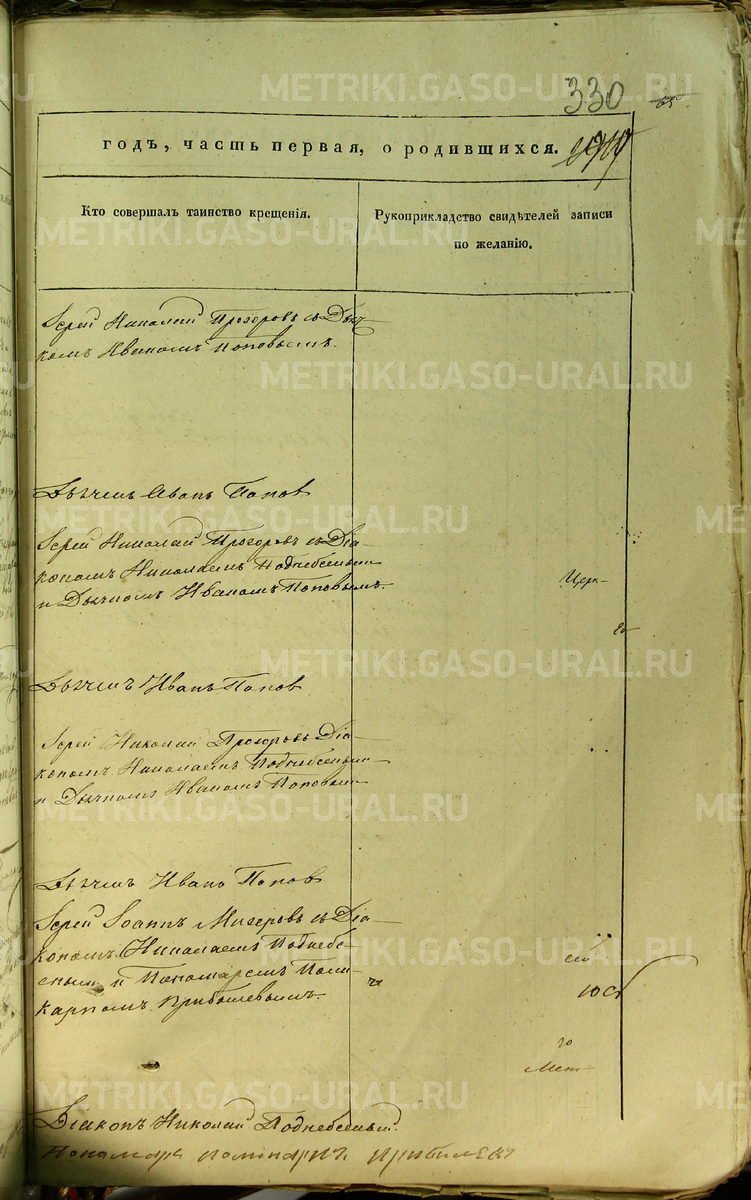 330
65
годъ, часть первая, о родившихся.
Кто совершалъ таинство крещенія.
Рукоприкладство свидѣтелей записи
по желанію.
Іерей Николай Прозоровъ съ Дьяч
комъ Иваномъ Поповымъ.
Дьячекъ Иванъ Попов
Іерей Николай Прозоровъ съ Діа
кономъ Николаемъ Поднебеснымъ
и Дьячкомъ Иваномъ Поповымъ.
Дьячекъ Иванъ Попов
Іерей Николай Прозоровъ Діа
кономъ Николаемъ Поднебеснымъ
и Дьячкомъ Иваномъ Поповымъ
Дьячекъ Иванъ Попов
Іерей Іоаннъ съ Діа
кономъ Николаемъ Поднебе
снымъ и Пономаремъ Поли
карпомъ Прибылевымъ.
Діаконъ Николай Поднебесный.
METRIKI.GASO-URAL.RU